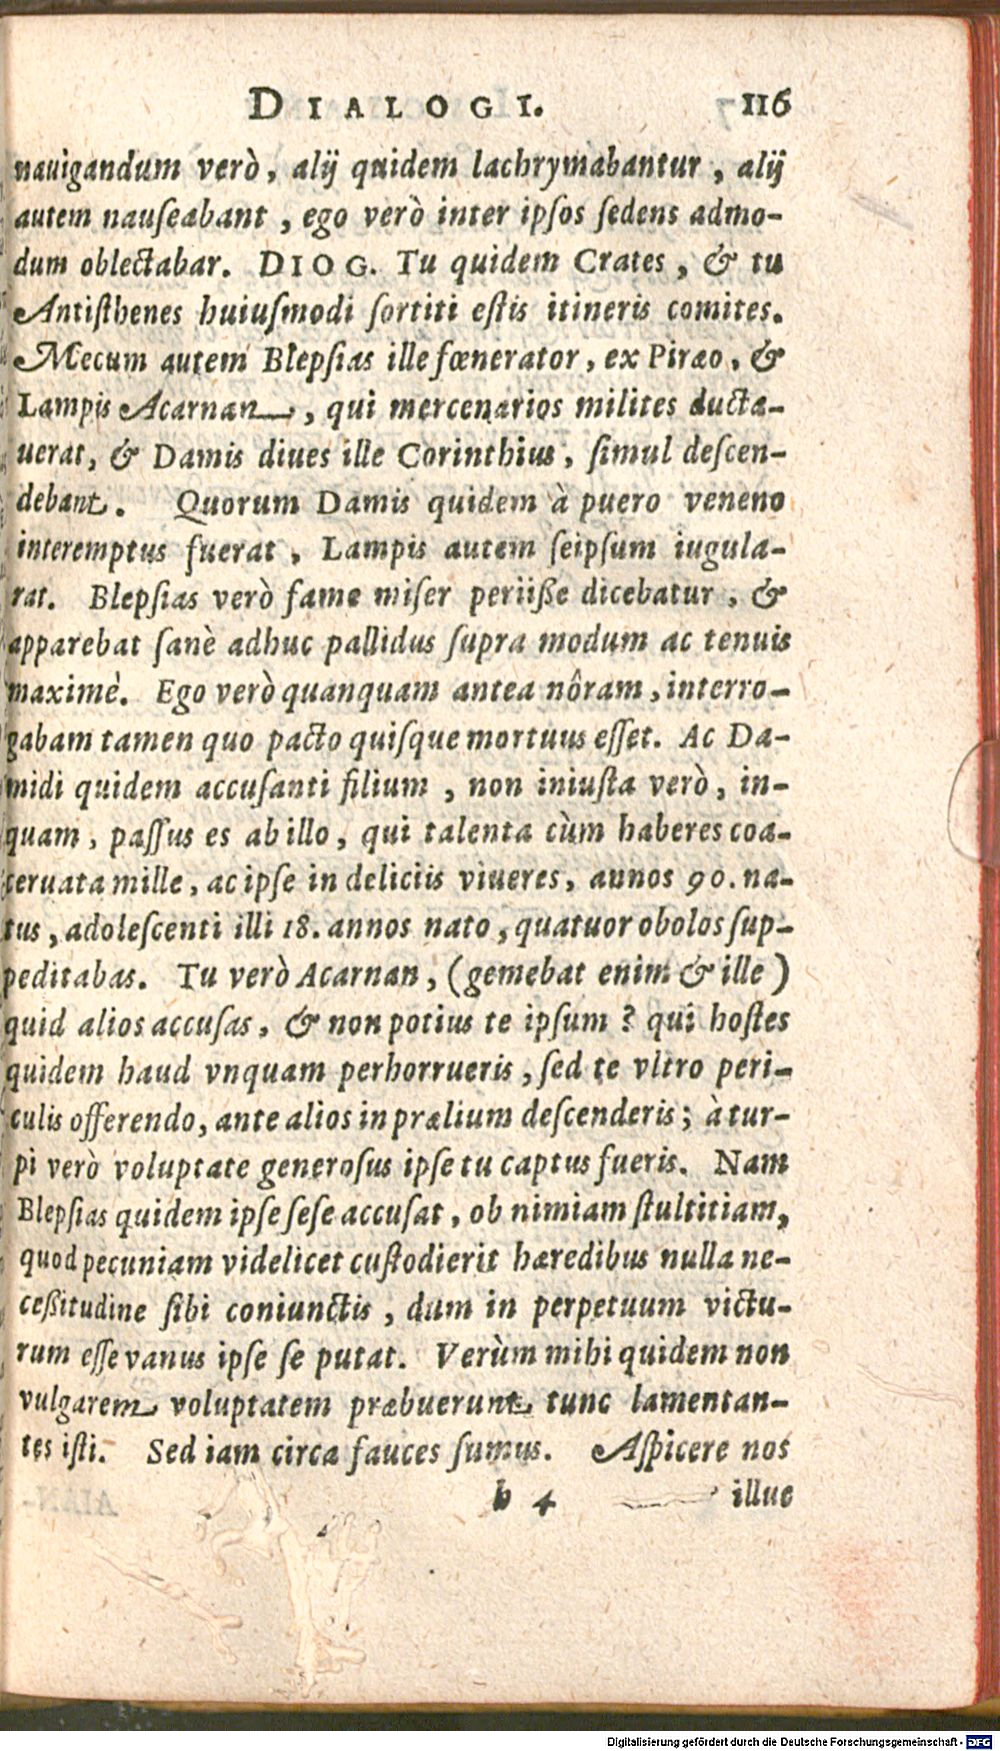 DIALOGI. 116
nauigandum verò, alij quidem lachrymabantur, alij
autem nauſeabant, ego verò inter ipſos ſedens admo-
dum oblectabar. DIOG. Tu quidem Crates, & tu
Antiſthenes huiuſmodi ſortiti eſtis itineris comites.
Mecum autem Blepſias ille fœnerator, ex Piræo, &
Lampis Acarnan, qui mercenarios milites ducta-
uerat, & Damis diues ille Corinthius, ſimul deſcen-
debant. Quorum Damis quidem à puero veneno
interemptus fuerat, Lampis autem ſeipſum iugula-
rat. Blepſias verò fame miſer periiſſe dicebatur, &
apparebat ſanè adhuc pallidus ſupra modum ac tenuis
maximè. Ego verò quanquam antea nôram, interro-
gabam tamen quo pacto quiſque mortuus eſſet. Ac Da-
midi quidem accuſanti filium, non iniuſta verò, in-
quam, paſſus es ab illo, qui talenta cùm haberes coa-
ceruata mille, ac ipſe in deliciis viueres, annos 90. na-
tus, adoleſcenti illi 18. annos nato, quatuor obolos ſup-
peditabas. Tu verò Acarnan, (gemebat enim & ille)
quid alios accuſas, & non potius te ipſum? qui hoſtes
quidem haud vnquam perhorrueris, ſed te vltro peri-
culis offerendo, ante alios in prælium deſcenderis; à tur-
pi verò voluptate generoſus ipſe tu captus fueris. Nam
Blepſias quidem ipſe ſeſe accuſat, ob nimiam ſtultitiam,
quod pecuniam videlicet cuſtodierit hæredibus nulla ne-
ceſſitudine ſibi coniunctis, dum in perpetuum victu-
rum eſſe vanus ipſe ſe putat. Verùm mihi quidem non
vulgarem voluptatem præbuerunt tunc lamentan-
tes iſti. Sed iam circa fauces ſumus. Aſpicere nos
b 4 illuc
Digitalisierung gefördert durch die Deutsche Forschungsgemeinschaft - DFG